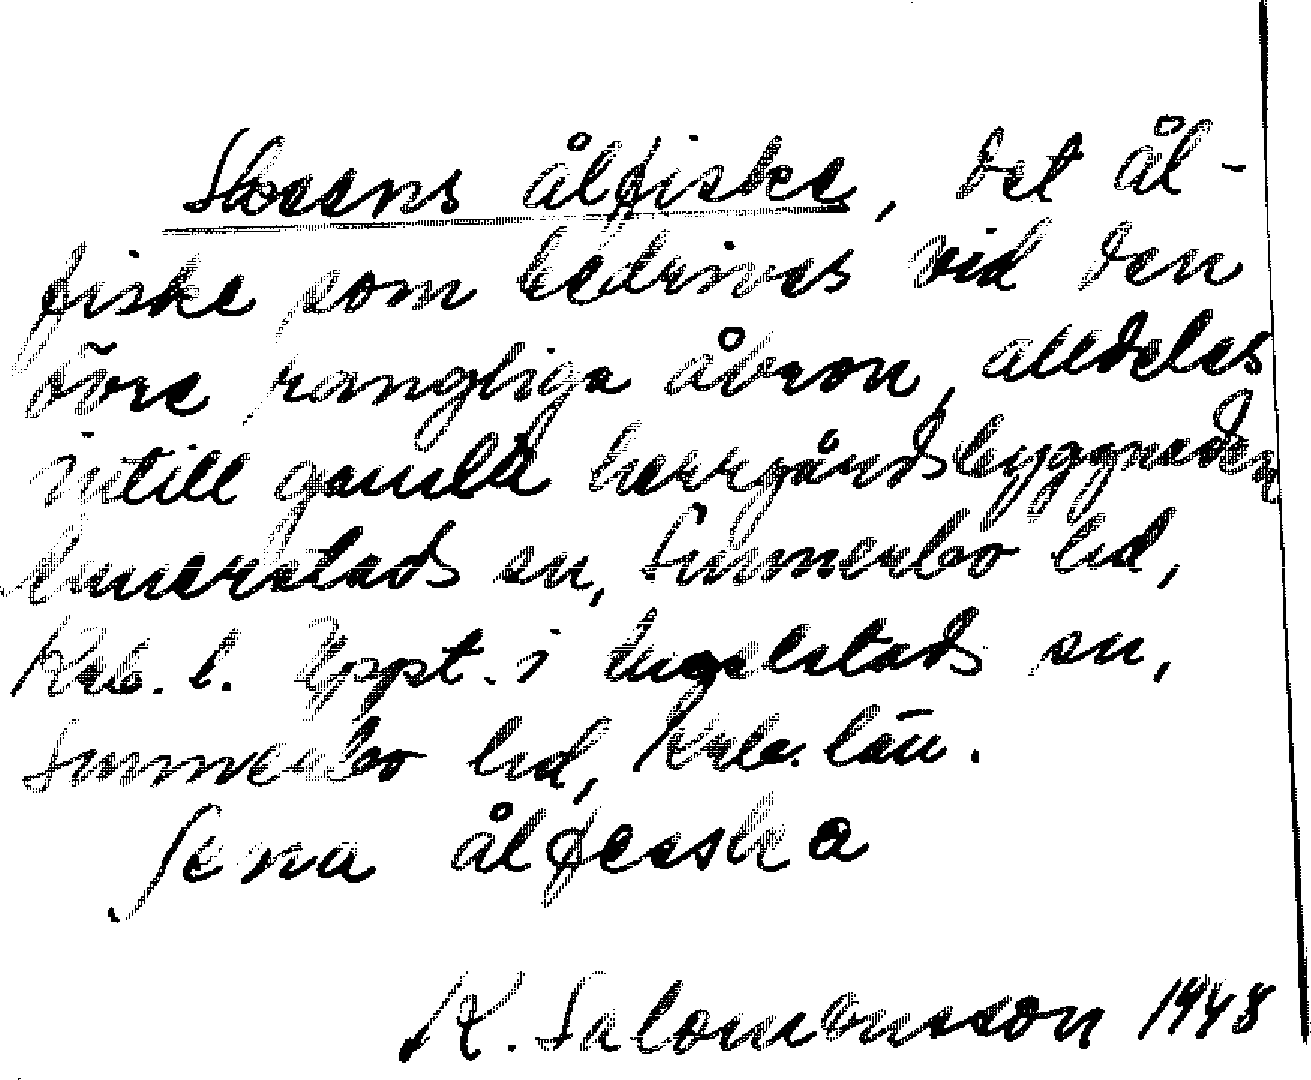 Åsens ålfiske, det ål-
fiske som bedrives vid den
övre rangliga åbron, alldeles
intill gamla herrgårdsbyggnaden
Emmerstads sn, Simmerbo hd,
Krb. l. Uppt. i Ingelstads sn,
Simmerbo hd, Krb. län.
ålfesska
K. Salomonsson 1948